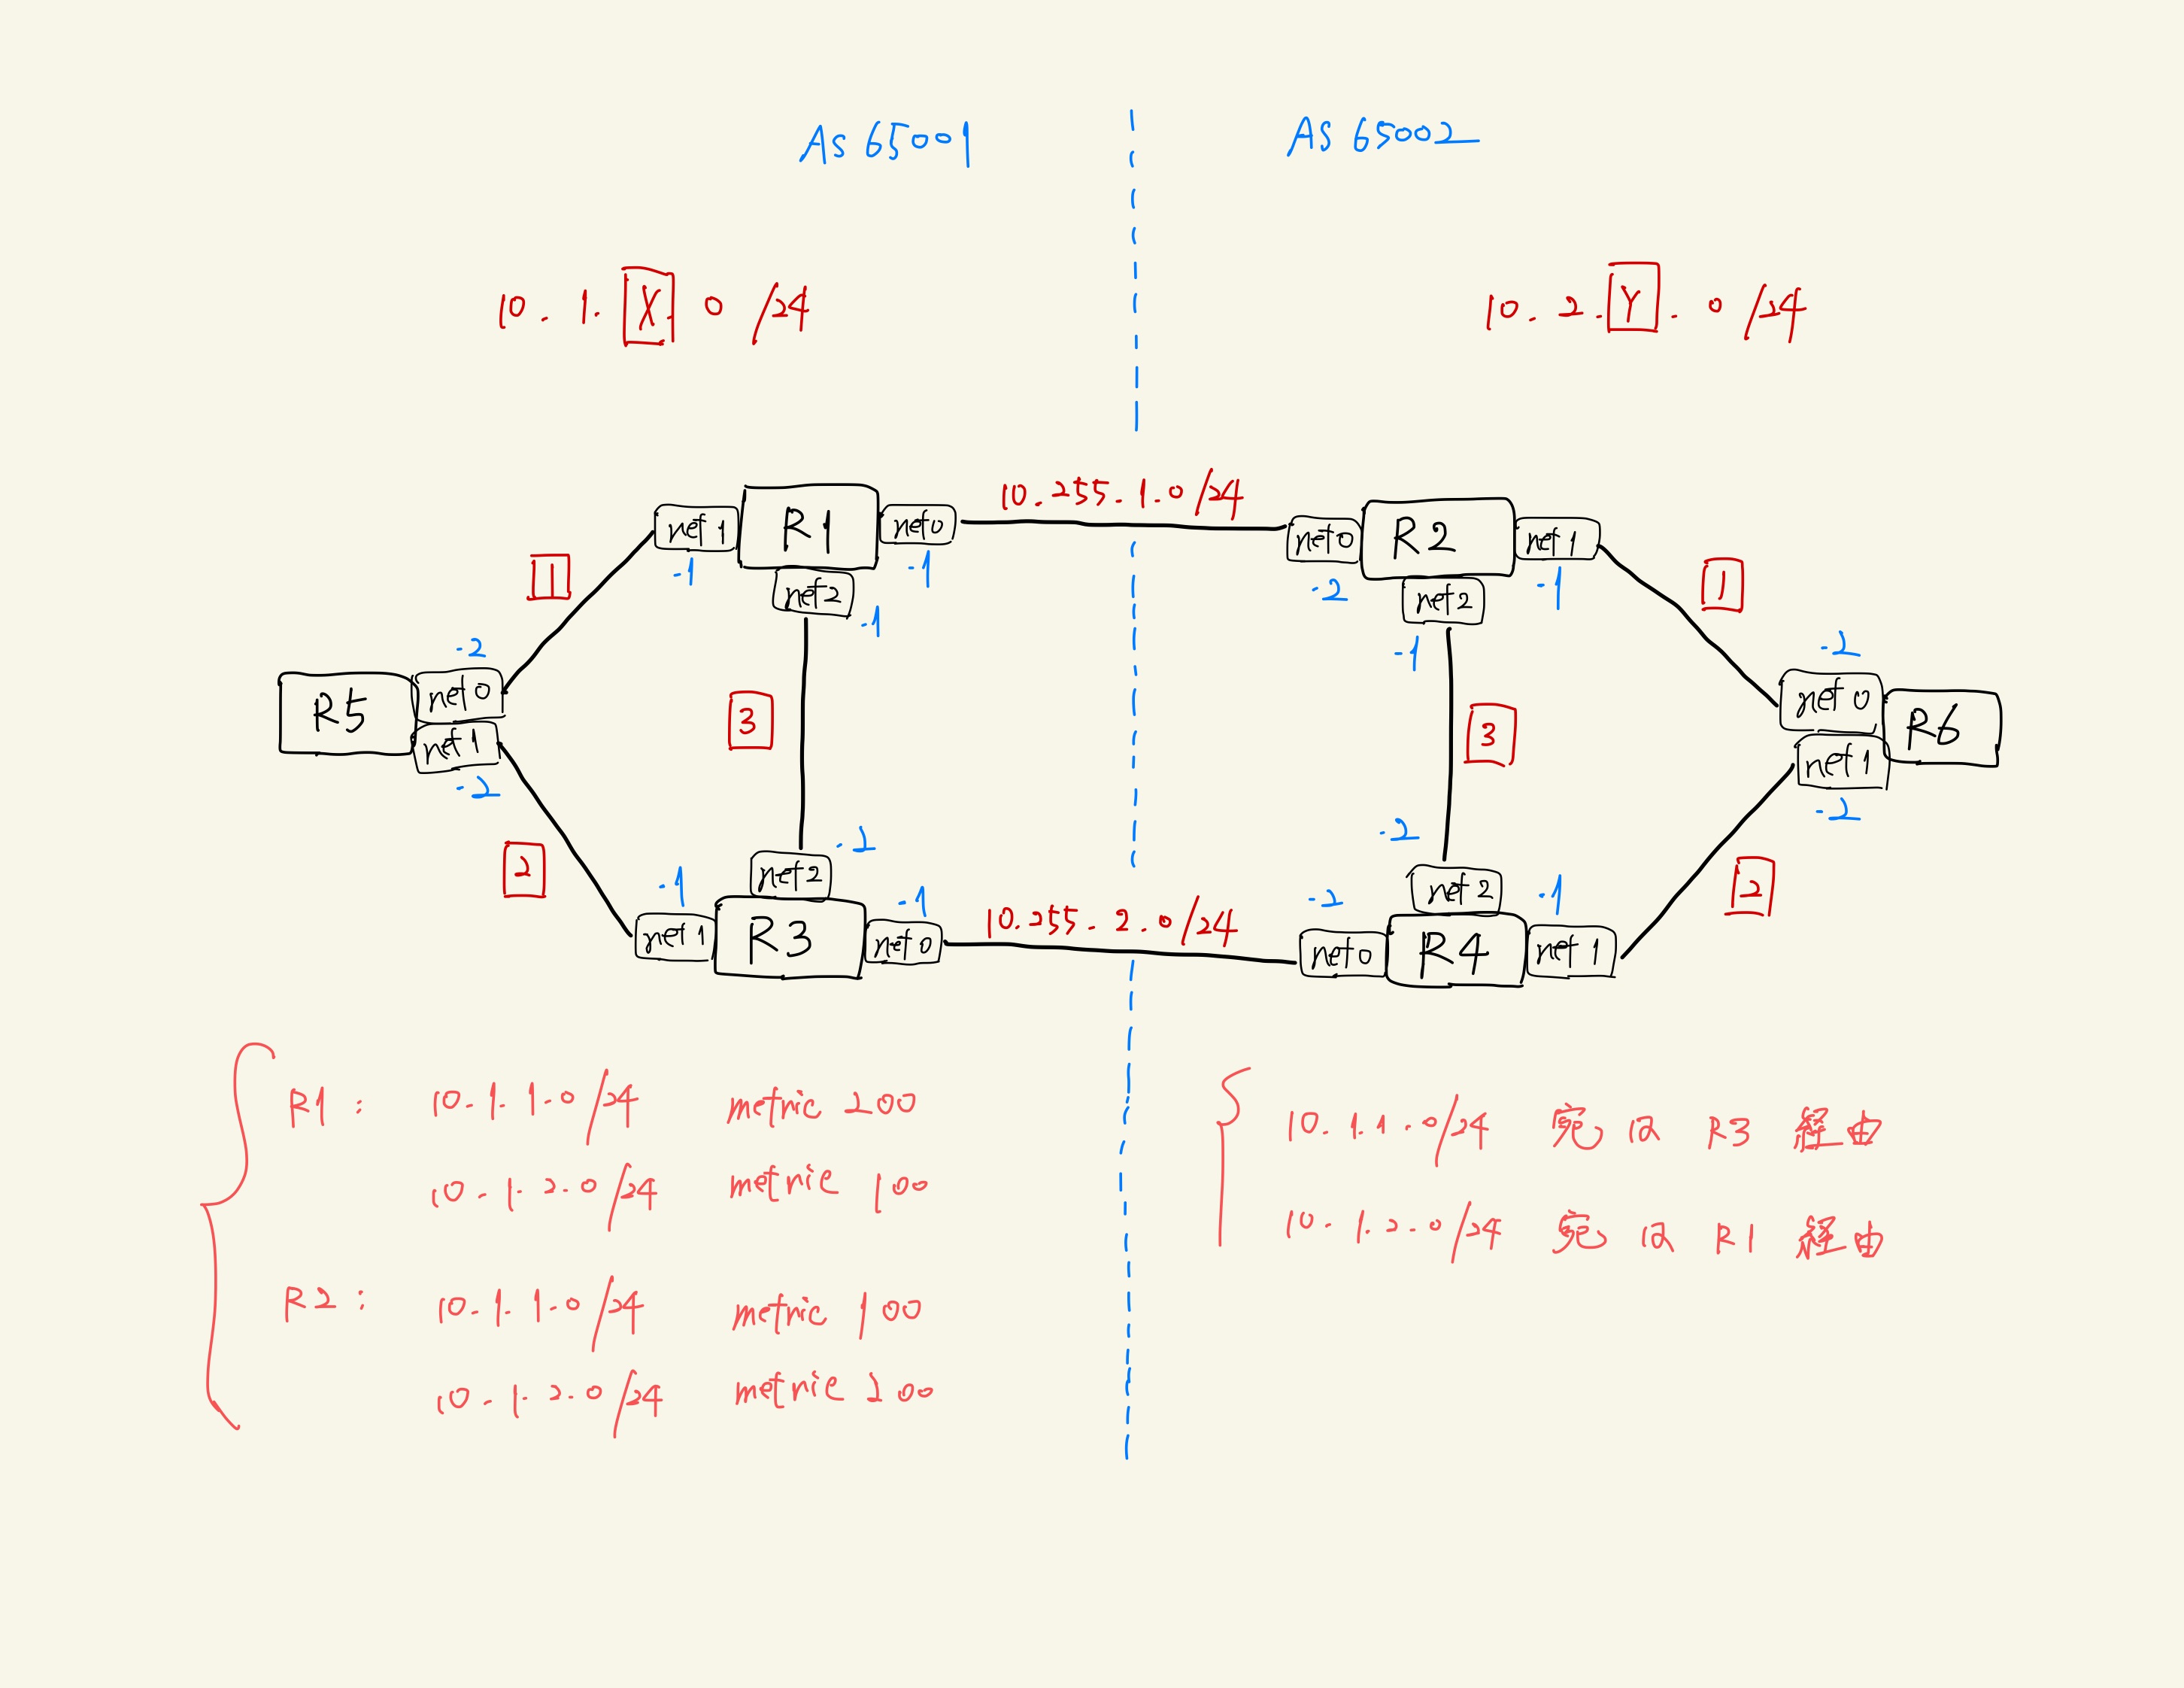 As 65001
AS 65002
10.1.X 0/24
10.2.Y.0/24
10.255.1.0/24
net1
R1
net0
net0
R2
net1
1
-1
-1
-2
-1
1
net2
-1
net2
-1
-2
-2
R5
net0
net1
-2
3
3
net0
R6
net1
-2
2
-1
-2
-1
-2
-2
-1
2
net2
net2
10.255.2.0/24
net1
R3
net0
net0
R4
net1
R1: 10.1.1.0/24 metric 200
10.1.2.0/24 metric 100
R2: 10.1.1.0/24 metric 100
10.1.2.0/24 metric 200
10.1.1.0/24 宛は R3 経由
10.1.2.0/24 宛は R1 経由